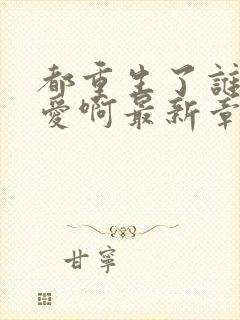 都重生了誰
愛啊最新章
甘寧